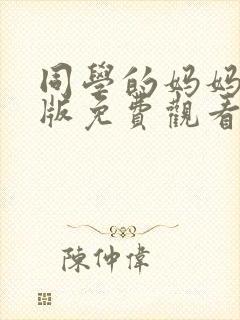 同學的妈妈
版免費觀看
陳仲偉